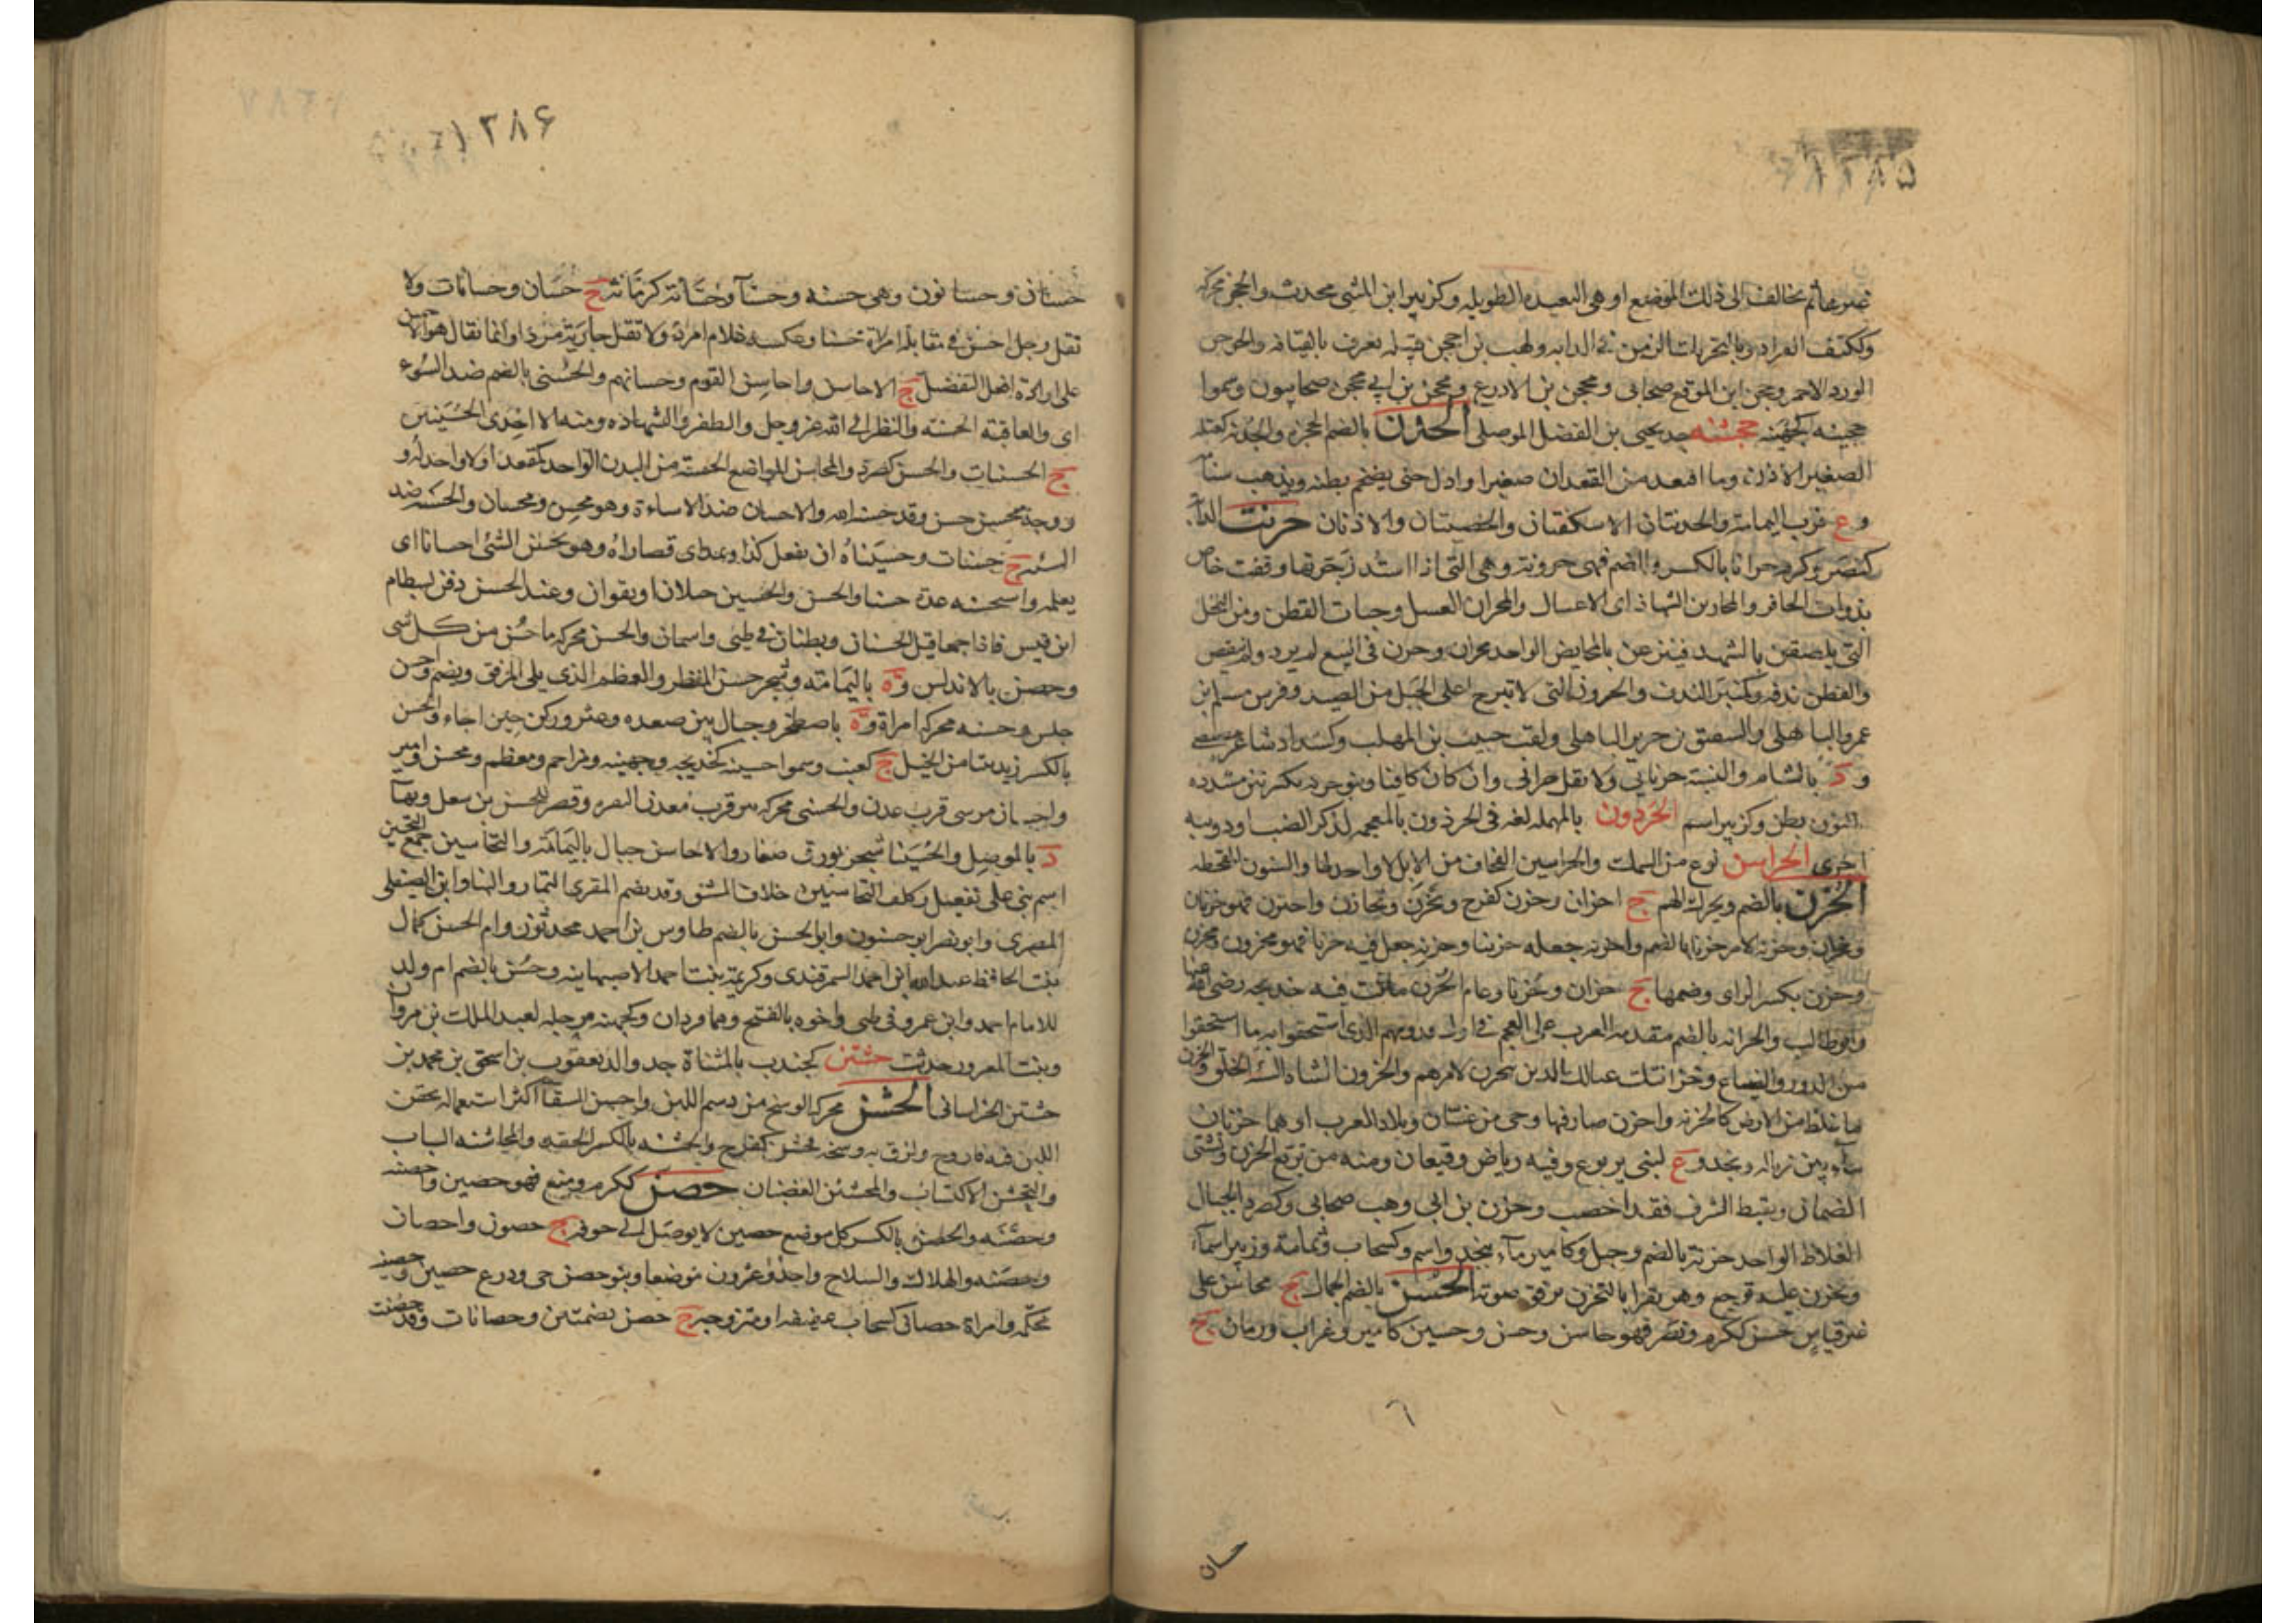 ۱۳۸۵
غيرها ثم تخالف الى ذلك الموضع او هى البعيده الطويله وكزبير ابن المثنى محدث والحجن محركه
وككتف القراد وبالتحريك الزمن فى الدابه ولهب بن احجن قبيله تعرف بالقيافه والحوجن
الورد الاحمر وحجن ابن المرقع صحابى ومحجن بن الادرع ومحجن بن ابى محجن صحابيون وسموا
حجينه كجهينه حجشنه جد يحيى بن الفضل الموصلى الحذن بالضم الحجزة والحذنه كعتله
الصغير الاذن وما اقعد من القعدان صغيرا واذل حتى يضخم بطنه ويذهب سنامه
وع قرب اليمامة والحذنتان الاسكتان والخصيتان والاذنان حرنت الدابة
كنصر وكرم حرانا بالكسر والضم فهى حرون وهى التى اذا استد جريها وقفت خاص
بذوات الحافر والمحارين الشهاد اى الاعسال والمحران العسل وحبات القطن ومن النحل
التى يلصقن بالشهد فينزعن بالمحابض الواحد محران وحرن فى البيع لم يزد ولم ينقص
والقطن ندفه وكمنبر المندف والحرون التى لا تبرح اعلى الجبل من الصيد وفرس مسلم بن
عمرو الباهلى والسفق بن جرير الباهلى ولقب حبيب بن المهلب وكشداد شاعر
ود بالشام والنسبة حرنانى ولا تقل حرانى وان كان قياسا وبنو حرنه بكسرتين مشدده
النون بطن وكزبير اسم الحردون بالمهمله لغه فى الحرذون بالمعجمه لذكر الضب او دويبه
اخرى الحراسن نوع من السمك والحراسين العجاف من الابل لا واحد لها والسنون المقحطه
الحزن بالضم ويحرك الهم ج احزان وحزن كفرح وتحزن وتحازن واحتزن فهو حزنان
ومحزان وحزنه الامر حزنا بالضم واحزنه جعله حزينا وحزنه جعل فيه حزنا فهو محزون ومحزن
وحزن بكسر الزاى وضمها ج حزان وحزنا وعام الحزن ماتت فيه خديجه رضى الله عنها
وابوطالب والحزانه بالضم مقدمة العرب على العجم فى اول قدومهم الذى استحقوا به ما استحقوا
من الدور والضياع وحزانتك عيالك الذين تتحزن لامرهم والحزون الشاة السيئة الخلق والحزن
ما غلظ من الارض كالحزنه واحزن صار فيها وحى من غسان وبلاد العرب او هما حزنان
ما بين زباله ونجد وع لبنى يربوع وفيه رياض وقيعان ومنه من تربع الحزن وتشتى
الضمان وتقيظ الشرف فقد اخصب وحزن بن ابى وهب صحابى وكصرد الجبال
الغلاظ الواحد حزنة بالضم وجبل وكامير ماء بنجد واسم وكسحاب وثمامة وزبير اسماء
وتحزن عليه توجع وهو يقرا بالتحزين يرقق صوته الحسن بالضم الجمال ج محاسن على
غير قياس حسن ككرم ونصر فهو حاسن وحسن وحسين كامير وغراب ورمان ج
٦
حسان
۱۳۸۶
حسنان وحسانون وهى حسنه وحسنآ وحسانة كرمانة ج حسان وحسانات ولا
تقل رجل احسن فى مقابلة امراة حسنا وعكسه غلام امرد ولا تقل جارية مردا وانما يقال هو الاحسن
على ارادة افعل التفضيل ج الاحاسن واحاسن القوم وحسانهم والحسنى بالضم ضد السوء
اى والعاقبة الحسنة والنظر الى الله عز وجل والظفر والشهاده ومنه الا احدى الحسنيين
ج الحسنيات والحسن كصرد والمحاسن المواضع الحسنة من البدن الواحد كمقعد اولا واحد له و
ووجه محسن حسن وقد حسنه الله والاحسان ضد الاساءة وهو محسن ومحسان والحسنه ضد
السيئه ج حسنات وحسيناه ان يفعل كذا ويمد اى قصاراه وهو يحسن الشئ احسانا اى
يعلمه واستحسنه عده حسنا والحسن والحسين جبلان او نقوان وعند الحسن دفن بسطام
ابن قيس فاذا جمعا قيل الحسنان وبطنان فى طيئ واسمان والحسن محركه ما حسن من كل شى
وحصن بالاندلس وة باليمامة وشجر حسن المنظر والعظم الذى يلى المرفق ويضم واحسن
جلس وحسنه محركه امراة وة باصطخر وجبال بين صعده وعثر وركن من اجاء والحسن
بالكسر ريد ينتا من الجبل ج كعنب وسموا حسينه كخديجه وجهينه ومزاحم ومعظم ومحسن وامير
واحسان مرسى قرب عدن والحسنى محركه بير قرب معدن النقره وقصر للحسن بن سهل وبهآ
د بالموصل والحسينا شجر بورق صغار والاحاسن جبال باليمامة والتحاسين جمع التحسين
اسم بنى على تفعيل وكتاب التحاسين خلاف المشق وقد بضم المقرى التمار والهناد ابن الصيقلى
المصرى وابو نصر ابو حسنون وابا الحسن بالضم طاوس بن احمد محدثون وام الحسن كمال
بنت الحافظ عبدالله ابن احمد السمرقندى وكريمة بنت احمد الاصبهانيه وحسن بالضم ام ولد
للامام احمد وابن عمرو فى طى واخوه بالفتح وهما فردان وكجهينه جبله لعبد الملك بن مروان
وبنت المعرور حدثت حشتن كجندب بالمثناة جد والد يعقوب بن اسحق بن محمد بن
حشتن الخراسانى الحشن محركه الوسخ من دسم اللبن واحشن السقآ اكثر استعماله بحقن
اللبن فيه فاروح ولزق به وسخه فحشن كفرح والحشنه بالكسر الحقد والمحاشنه السباب
والتحشن الاكتساب والمحشئن الغضبان حصن ككرم ومنع فهو حصين واحصنه
وحصنه والحصن بالكسر كل موضع حصين لا يوصل الى جوفه ج حصون واحصان
وحصنه والهلاك والسلاح واحد وعشرون موضعا وبنو حصن حى ودرع حصين وحصينه
محكمه وامراة حصان كسحاب عفيفه او متزوجه ج حصن بضمتين وحصانات وقد حصنت